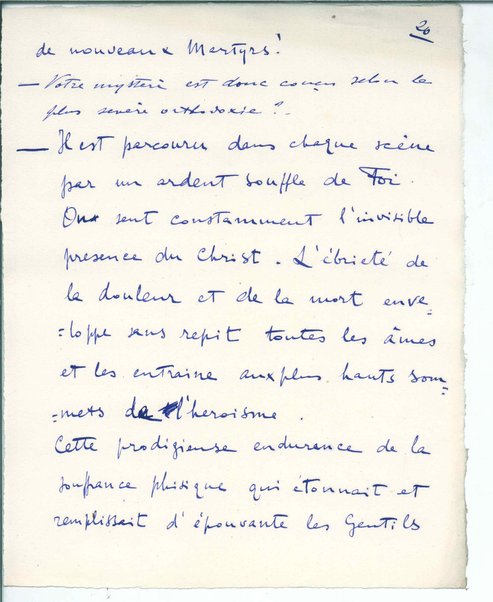 20
de nouveaux Martyrs!
— Votre mystère est donc conçu selon la
plus sevère orthodoxie?.
— Il est parcouru dans chaque scène
par un ardent souffle de Foi.
On sent constamment l'invisible
presence du Christ. L'ébrieté de
la douleur et de la mort enve-
=loppe sans repit toutes les âmes
et les entraine aux plus hauts som=
=mets de l'heroisme.
Cette prodigieuse endurence de la
souffrance phisique qui étonnait et
remplissait d'épouvante les Gentils